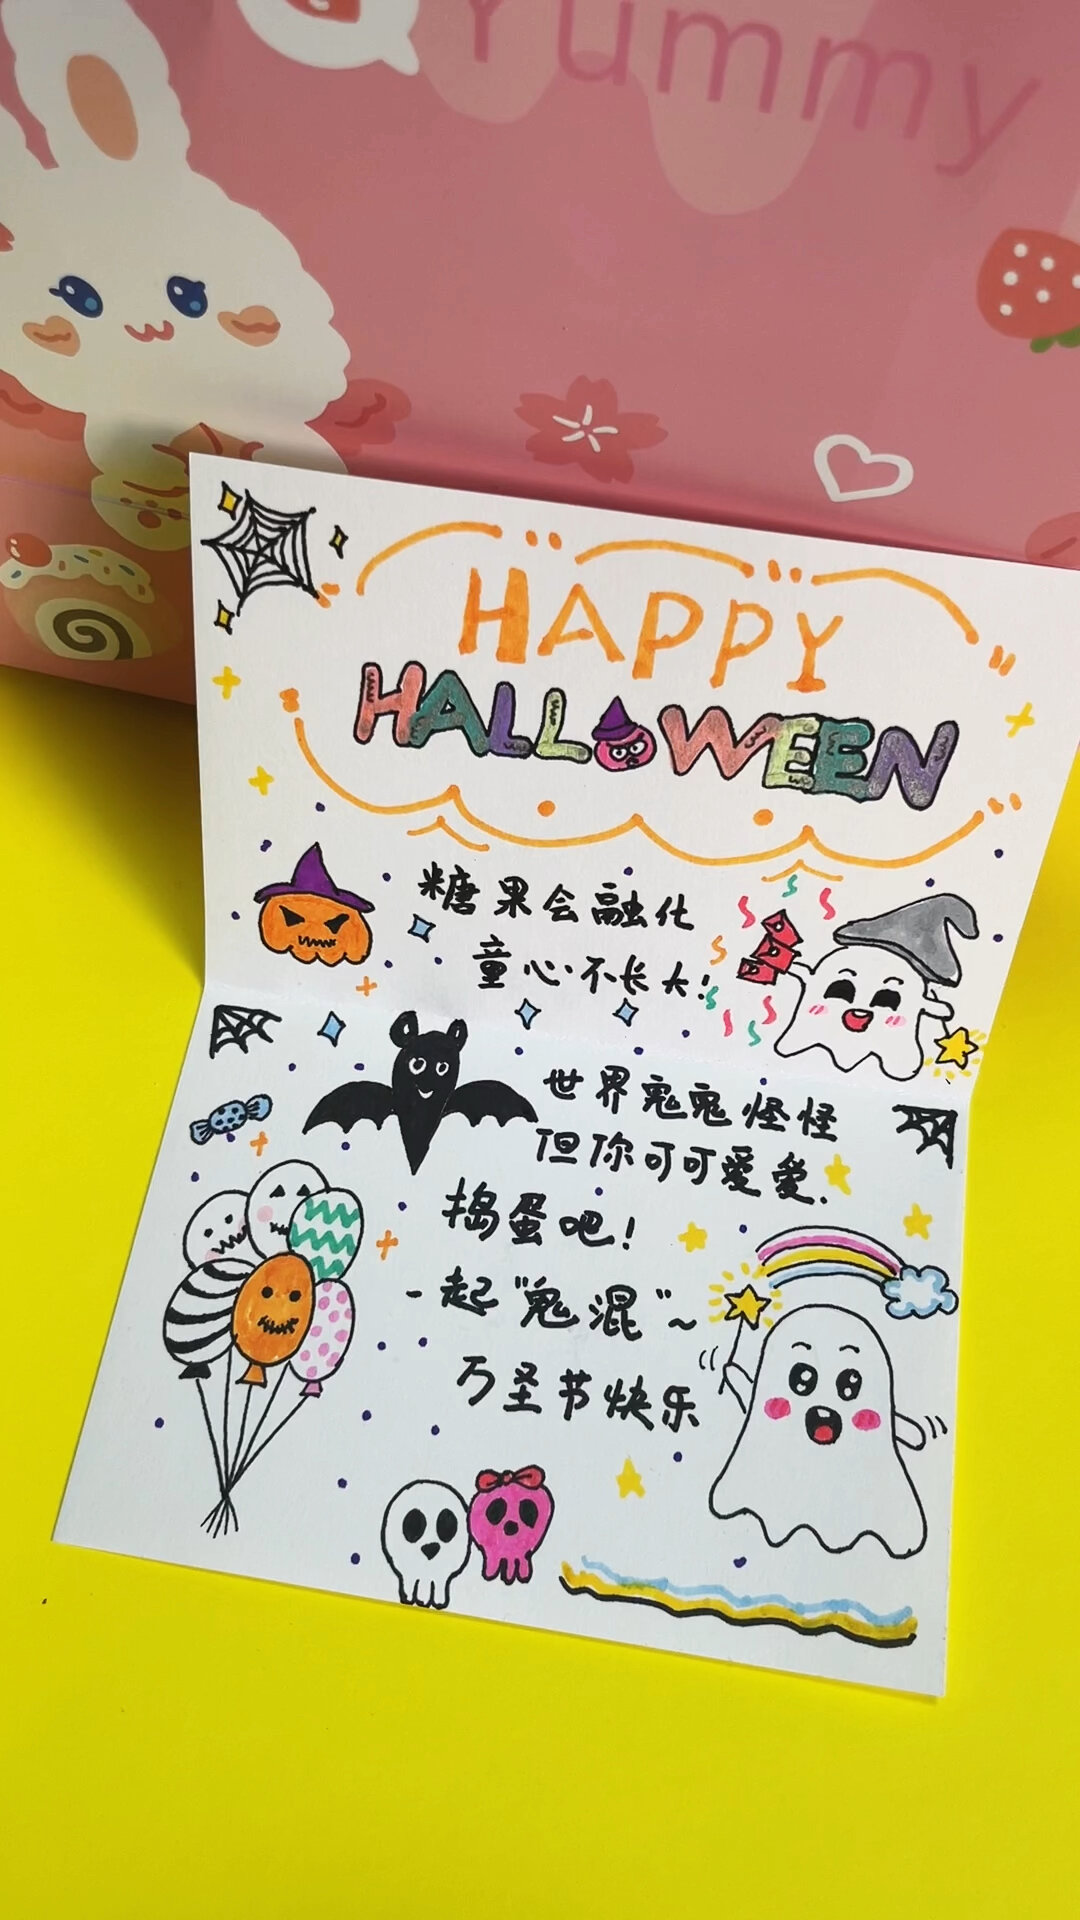 Yummy
HAPPY
HALLOWEEN
糖果会融化
童心不长大!
世界鬼鬼怪怪
但你可可爱爱.
捣蛋吧!
一起"鬼混"~
万圣节快乐